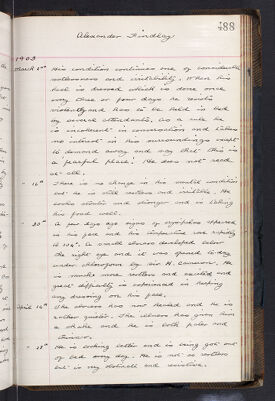 488
Alexander Findlay
1903
March 2nd His condition continues one of considerable
restlessness and irritability. When his
bed is dressed which is done once
every three or four days he resists
violently and has to be held in bed
by several attendants. As a rule he
is incoherent in conversation and takes
no interest in his surroundings except
to demand away and say that "this is
a fearful place". He does not read
at all.
" 16th There is no change in his mental condition
and he is still restless and irritable. He
looks stouter and stronger and is taking
his food well.
" 30th A few days ago signs of erysipelas appeared
in his face and his temperature rose rapidly
to 104°. A small abscess developed below
the right eye and it was opened to-day
under chloroform by Sir H. Cameron. He
is much more restless and excited and
great difficulty is experienced in keeping
any dressing on his face.
April 14th The abscess has now healed and he is
rather quieter. The illness has given him
a shake and he is both paler and
thinner.
" 28th He is looking better and is being got out
of bed every day. He is not so restless
but is very obstinate and resistive.